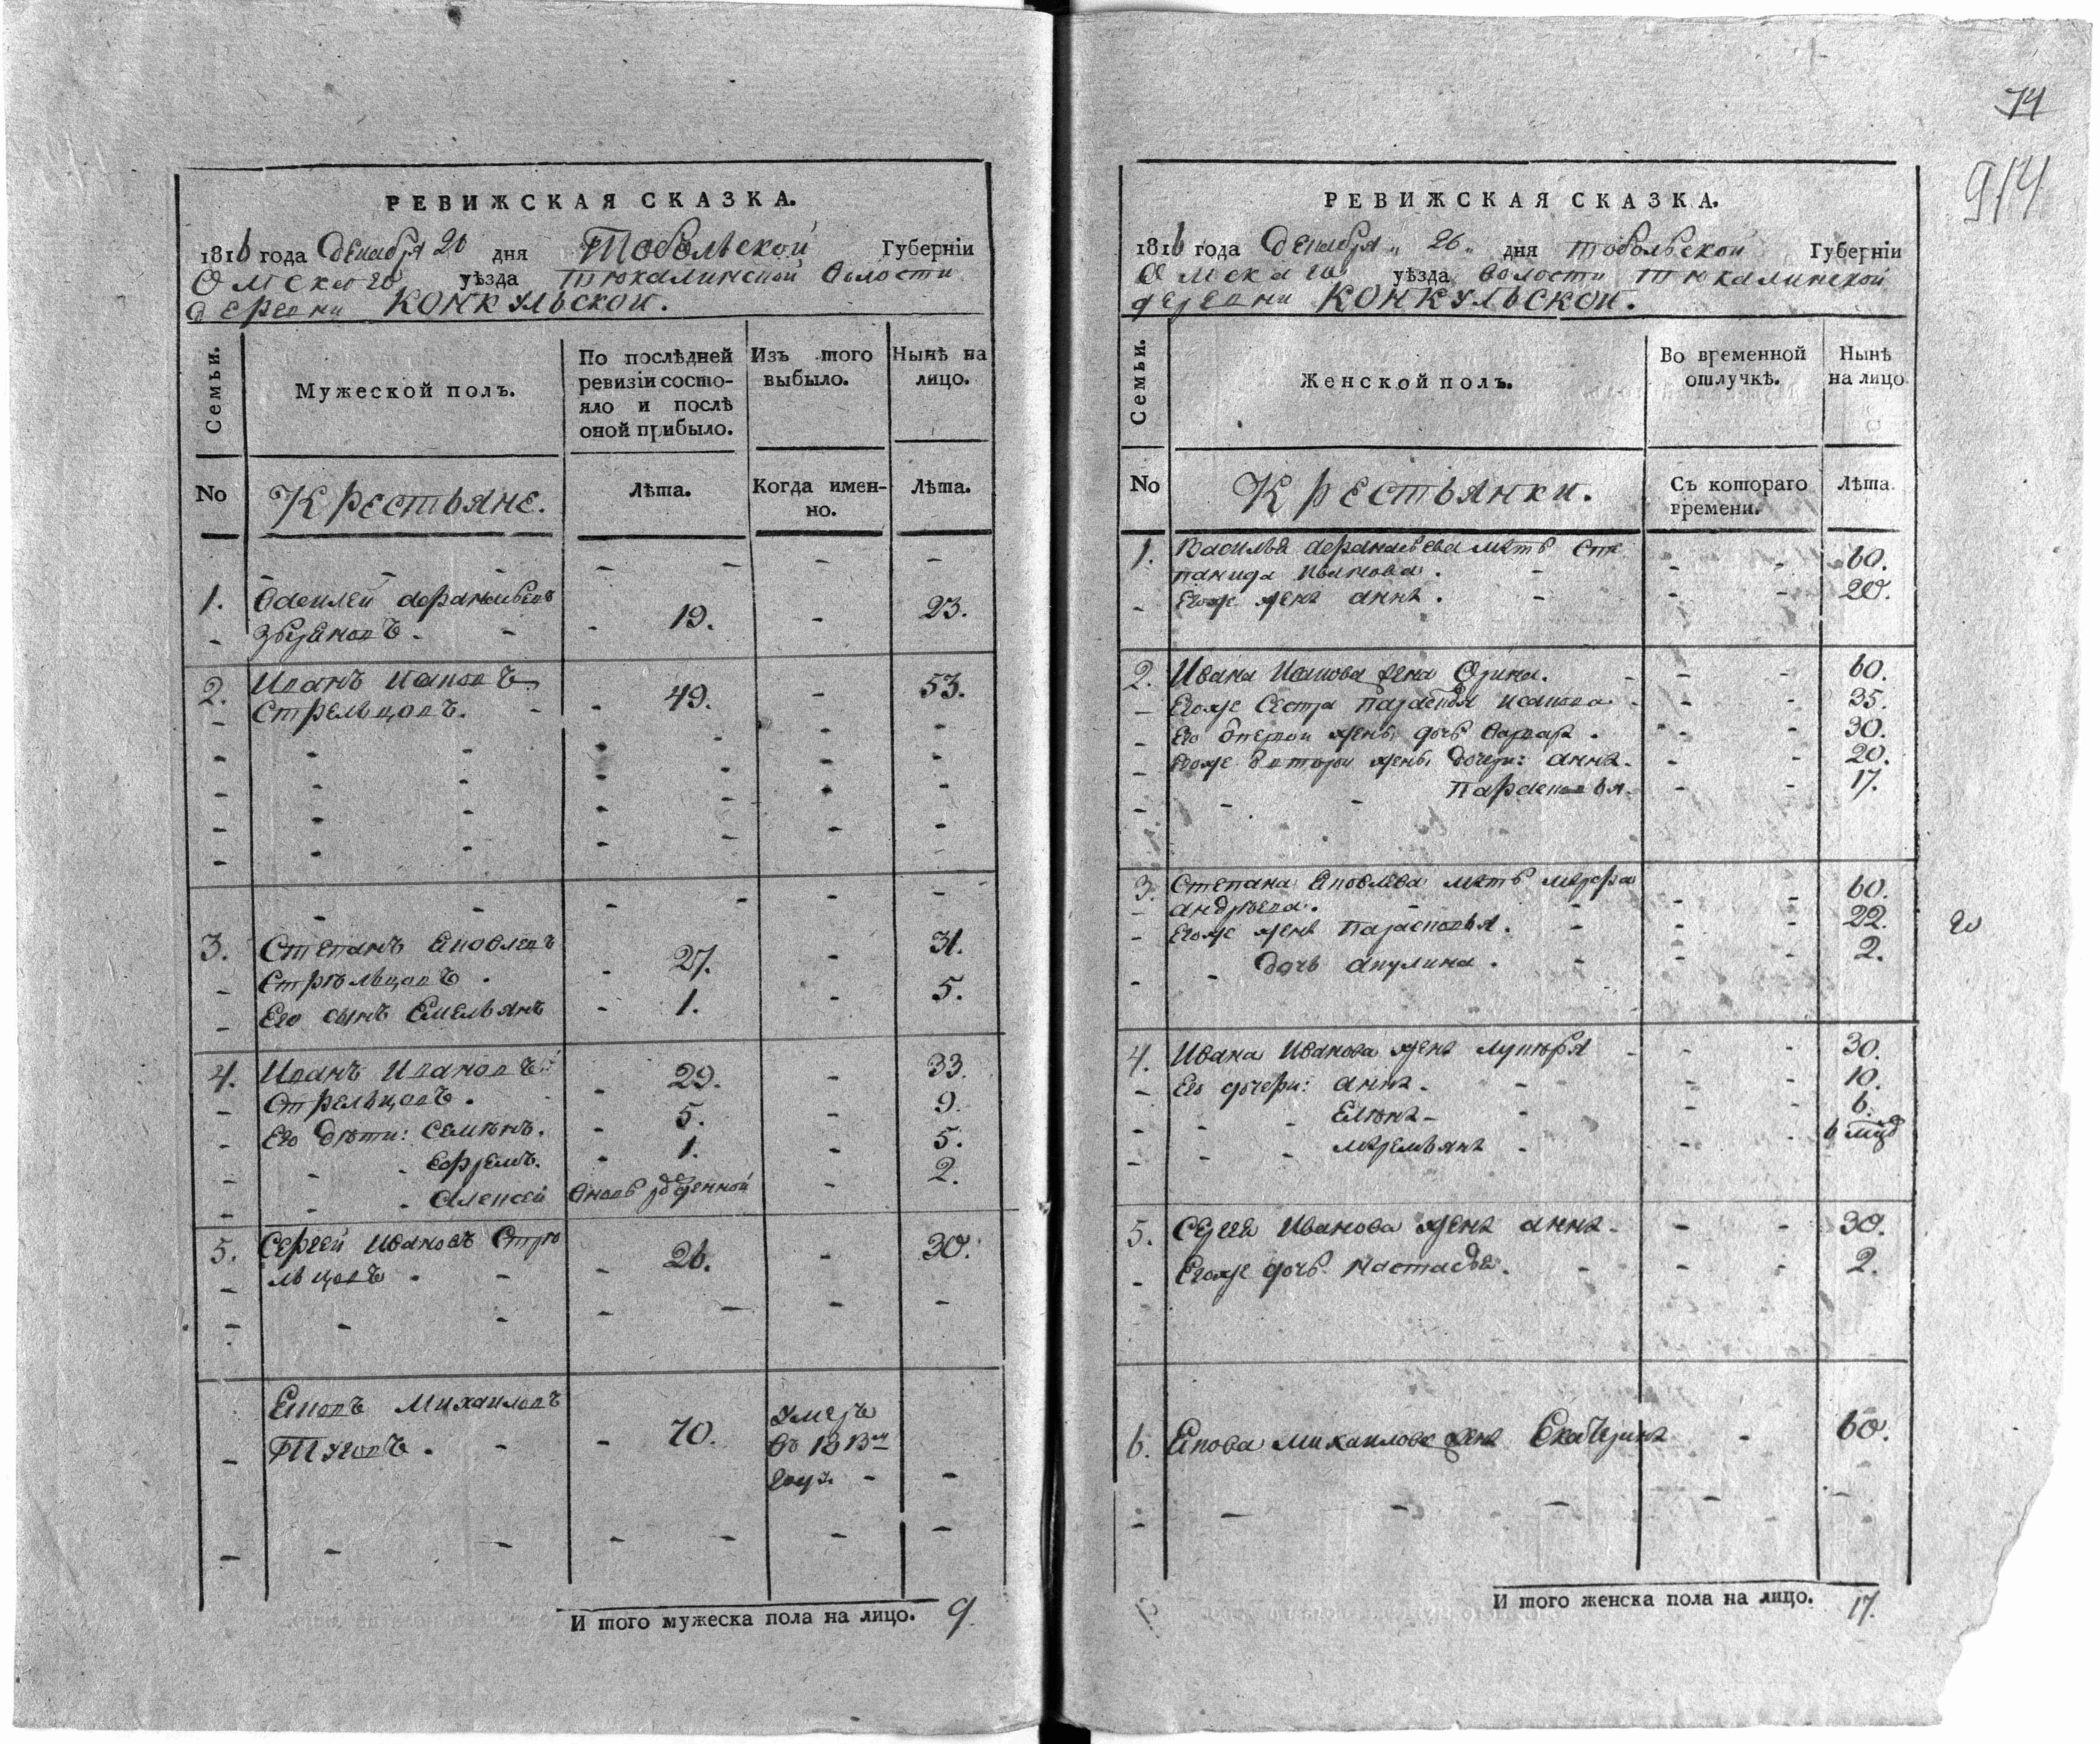 74
914
РЕВИЖСКАЯ СКАЗКА.
1816 года Декабря 26 дня Тобольской Губерніи
Омскаго уѣзда Тюкалинской волости
деревни Конкульской.
Семьи.
Мужеской полъ.
По послѣдней ревизіи состо-
яло и послѣ оной прибыло.
Изъ того выбыло.
Нынѣ на лицо.
No
Крестьяне.
Лѣта.
Когда имен-
но.
Лѣта.
1. Василей Афанасьевъ
19. 23.
2. Иванъ Исаковъ
Стрельцовъ. 49. 53.
3. Степанъ Яковлевъ
Стрѣльцовъ. 27. 31.
Его сынъ Емельянъ 1. 5.
4. Иванъ Ивановъ
Стрельцовъ. 29. 33.
Его дѣти: Семенъ. 5. 9.
Ефремъ. 1. 5.
Алексей вновь рожденной 2.
5. Сергей Ивановъ Стрѣ
льцовъ. 26. 30.
Михаиловъ
70. умеръ
въ 1813м
году
И того мужеска пола на лицо. 9
РЕВИЖСКАЯ СКАЗКА.
1816 года Декабря 26 дня Тобольской Губерніи
Омскаго уѣзда волости Тюкалинской
деревни Конкульской.
Семьи.
Женской полъ.
Во временной отлучкѣ.
Нынѣ на лицо
No
Крестьянки.
Съ котораго времени.
Лѣта.
1. Василья Афанасьева мать Сте
панида Иванова. 60.
Егоже жена Анна. 20.
2. Ивана Исакова жена Орина. 60.
Егоже сестра Парасковья Исакова 35.
Его жены дочь Варвара. 30.
Егоже второй жены дочери: Анна. 20.
Парасковья. 17.
3. Степана Яковлева мать Марфа
Андреева. 60.
Егоже жена Парасковья. 22.
дочь Акулина. 2.
4. Ивана Иванова жена Лукерья 30.
Его дочери: Анна. 10.
Елена 6.
Маремьяна 6
5. Сергея Иванова жена Анна. 30.
Егоже дочь Настасья. 2.
6. Михаилова жена Екатерина 60.
И того женска пола на лицо. 17.